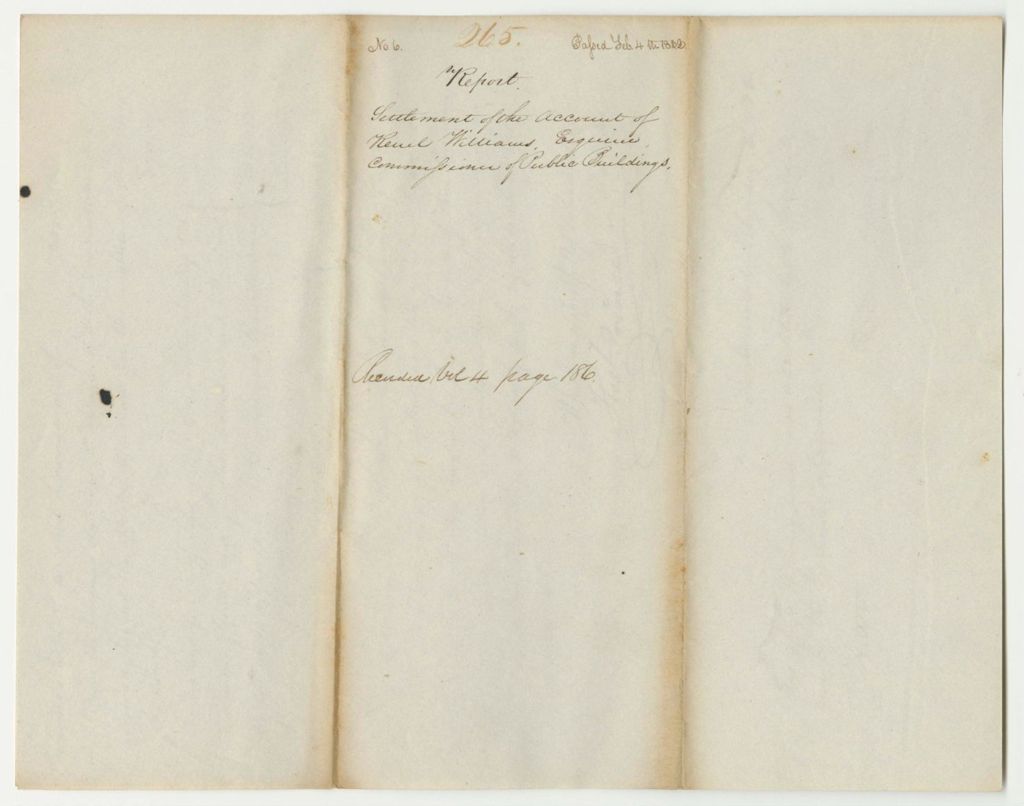 No 6. 265. Passed Feb 4th 1832
Report.
Settlement of the Account of
Reuel Williams, Esquire,
Commissioner of Public Buildings.
Recorded Vol 4 page 186